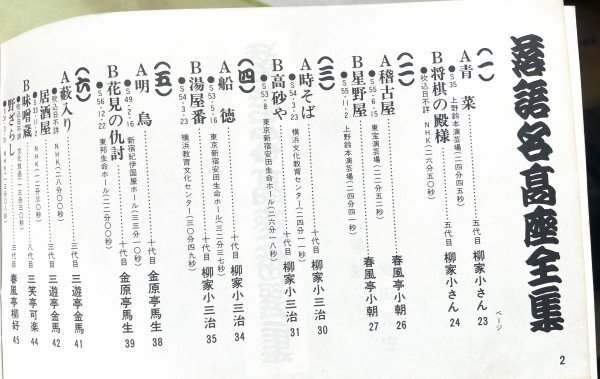 落語名高座全集
ページ
(一)
A青菜……五代目 柳家小さん 23
●S35 上野鈴本演芸場(二四分四五秒)
B将棋の殿様……五代目 柳家小さん 24
●吹込日不詳 NHK(二六分五〇秒)
(二)
A稽古屋……春風亭小朝 26
●S55・6・15 東宝演芸場(二二分五二秒)
B星野屋……春風亭小朝 27
●S55・11・2 上野鈴本演芸場(二四分四一秒)
(三)
A時そば……十代目 柳家小三治 30
●S54・3・23 横浜教育文化センター(二四分一一秒)
B高砂や……十代目 柳家小三治 31
●S53・8 東京新宿安田生命ホール(二六分一八秒)
(四)
A船徳……十代目 柳家小三治 34
●S53・5・16 東京新宿安田生命ホール(三二分三七秒)
B湯屋番……十代目 柳家小三治 35
●S54・3・23 横浜教育文化センター(三〇分四九秒)
(五)
A明烏……十代目 金原亭馬生 38
●S49・2・16 新宿紀伊国屋ホール(三三分一〇秒)
B花見の仇討……十代目 金原亭馬生 39
●S56・12・22 東邦生命ホール(二二分〇〇秒)
(六)
A藪入り……三代目 三遊亭金馬 41
●吹込日不詳 NHK(二八分〇〇秒)
居酒屋……三代目 三遊亭金馬 42
B味噌蔵……八代目 三笑亭可楽 44
野ざらし……三代目 春風亭柳好 45
2